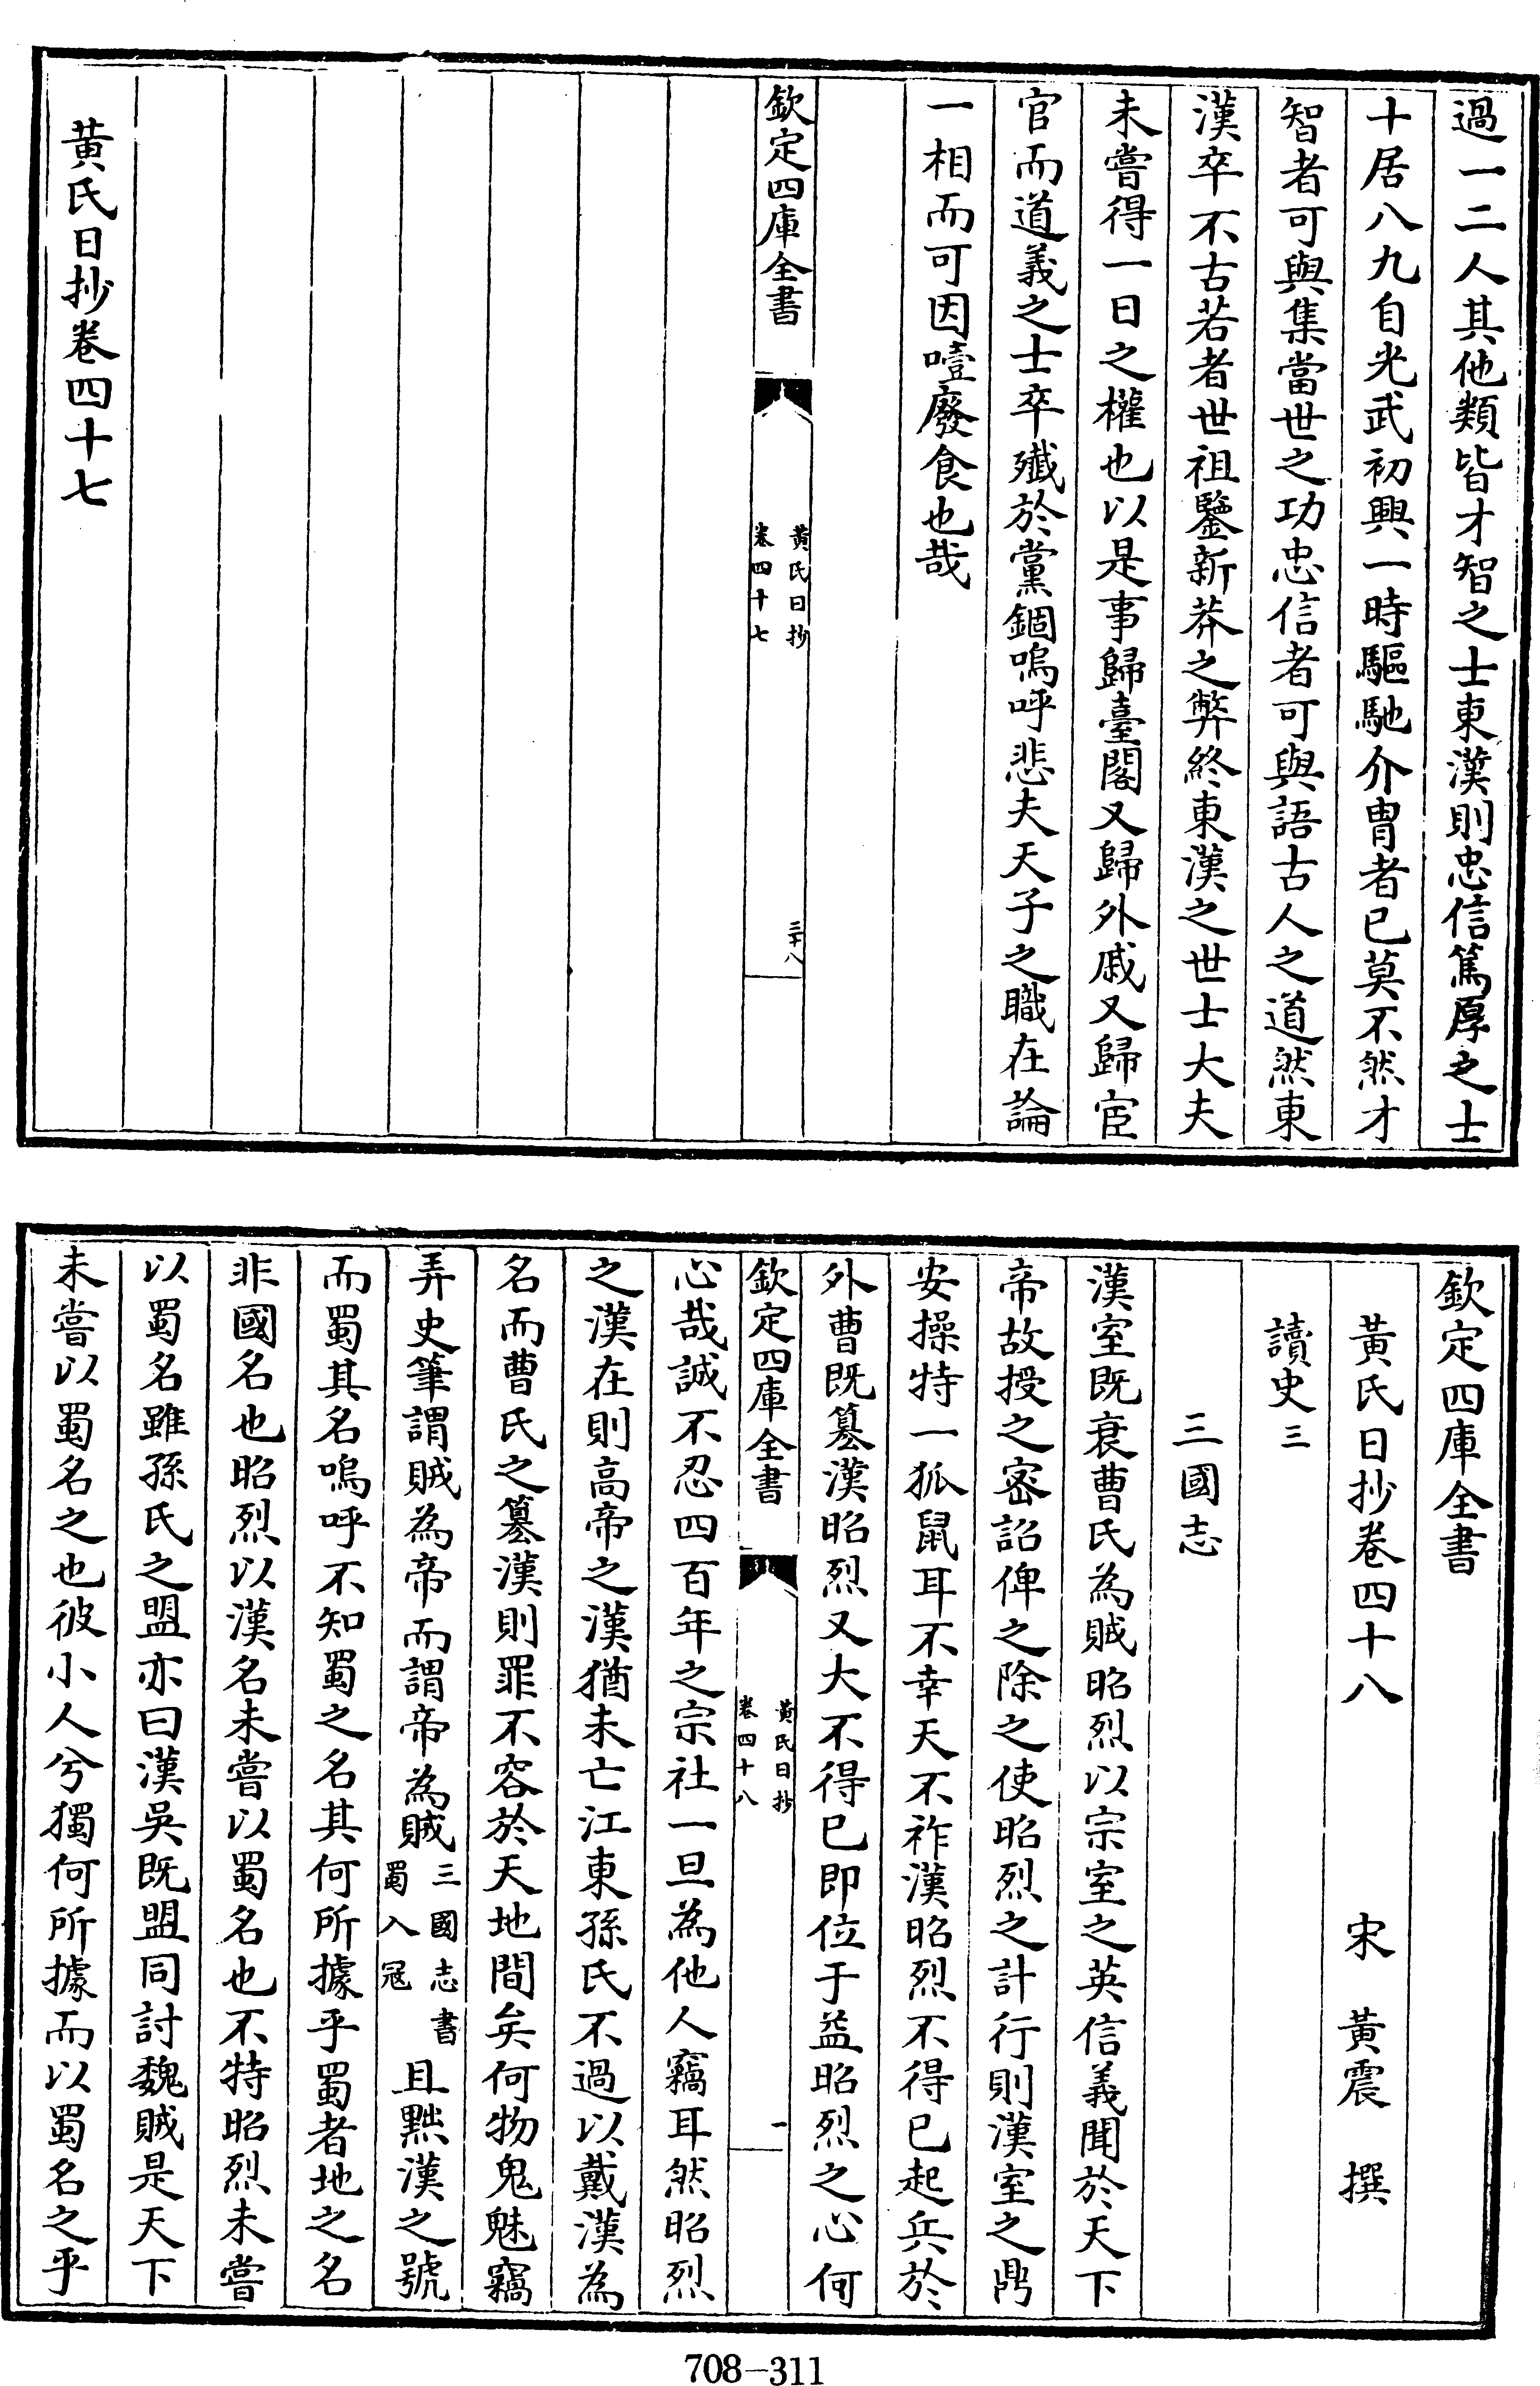 過一二人其他類皆才智之士東漢則忠信篤厚之士
十居八九自光武初興一時驅馳介胄者已莫不然才
智者可與集當世之功忠信者可與語古人之道然東
漢卒不古若者世祖鑒新莽之弊終東漢之世士大夫
未嘗得一日之權也以是事歸臺閣又歸外戚又歸宦
官而道義之士卒殲於黨錮嗚呼悲夫天子之職在論
一相而可因噎廢食也哉
欽定四庫全書
黃氏日抄
卷四十七
三十八
黃氏日抄卷四十七
欽定四庫全書
黃氏日抄卷四十八
宋 黃震 撰
讀史三
三國志
漢室既衰曹氏為賊昭烈以宗室之英信義聞於天下
帝故授之密詔俾之除之使昭烈之計行則漢室之鼎
安操特一狐鼠耳不幸天不祚漢昭烈不得已起兵於
外曹既篡漢昭烈又大不得已即位于益昭烈之心何
欽定四庫全書
黃氏日抄
卷四十八
一
心哉誠不忍四百年之宗社一旦為他人竊耳然昭烈
之漢在則高帝之漢猶未亡江東孫氏不過以戴漢為
名而曹氏之篡漢則罪不容於天地間矣何物鬼魅竊
弄史筆謂賊為帝而謂帝為賊三國志書蜀入冦且黜漢之號
而蜀其名嗚呼不知蜀之名其何所據乎蜀者地之名
非國名也昭烈以漢名未嘗以蜀名也不特昭烈未嘗
以蜀名雖孫氏之盟亦曰漢吳既盟同討魏賊是天下
未嘗以蜀名之也彼小人兮獨何所據而以蜀名之乎
708-311